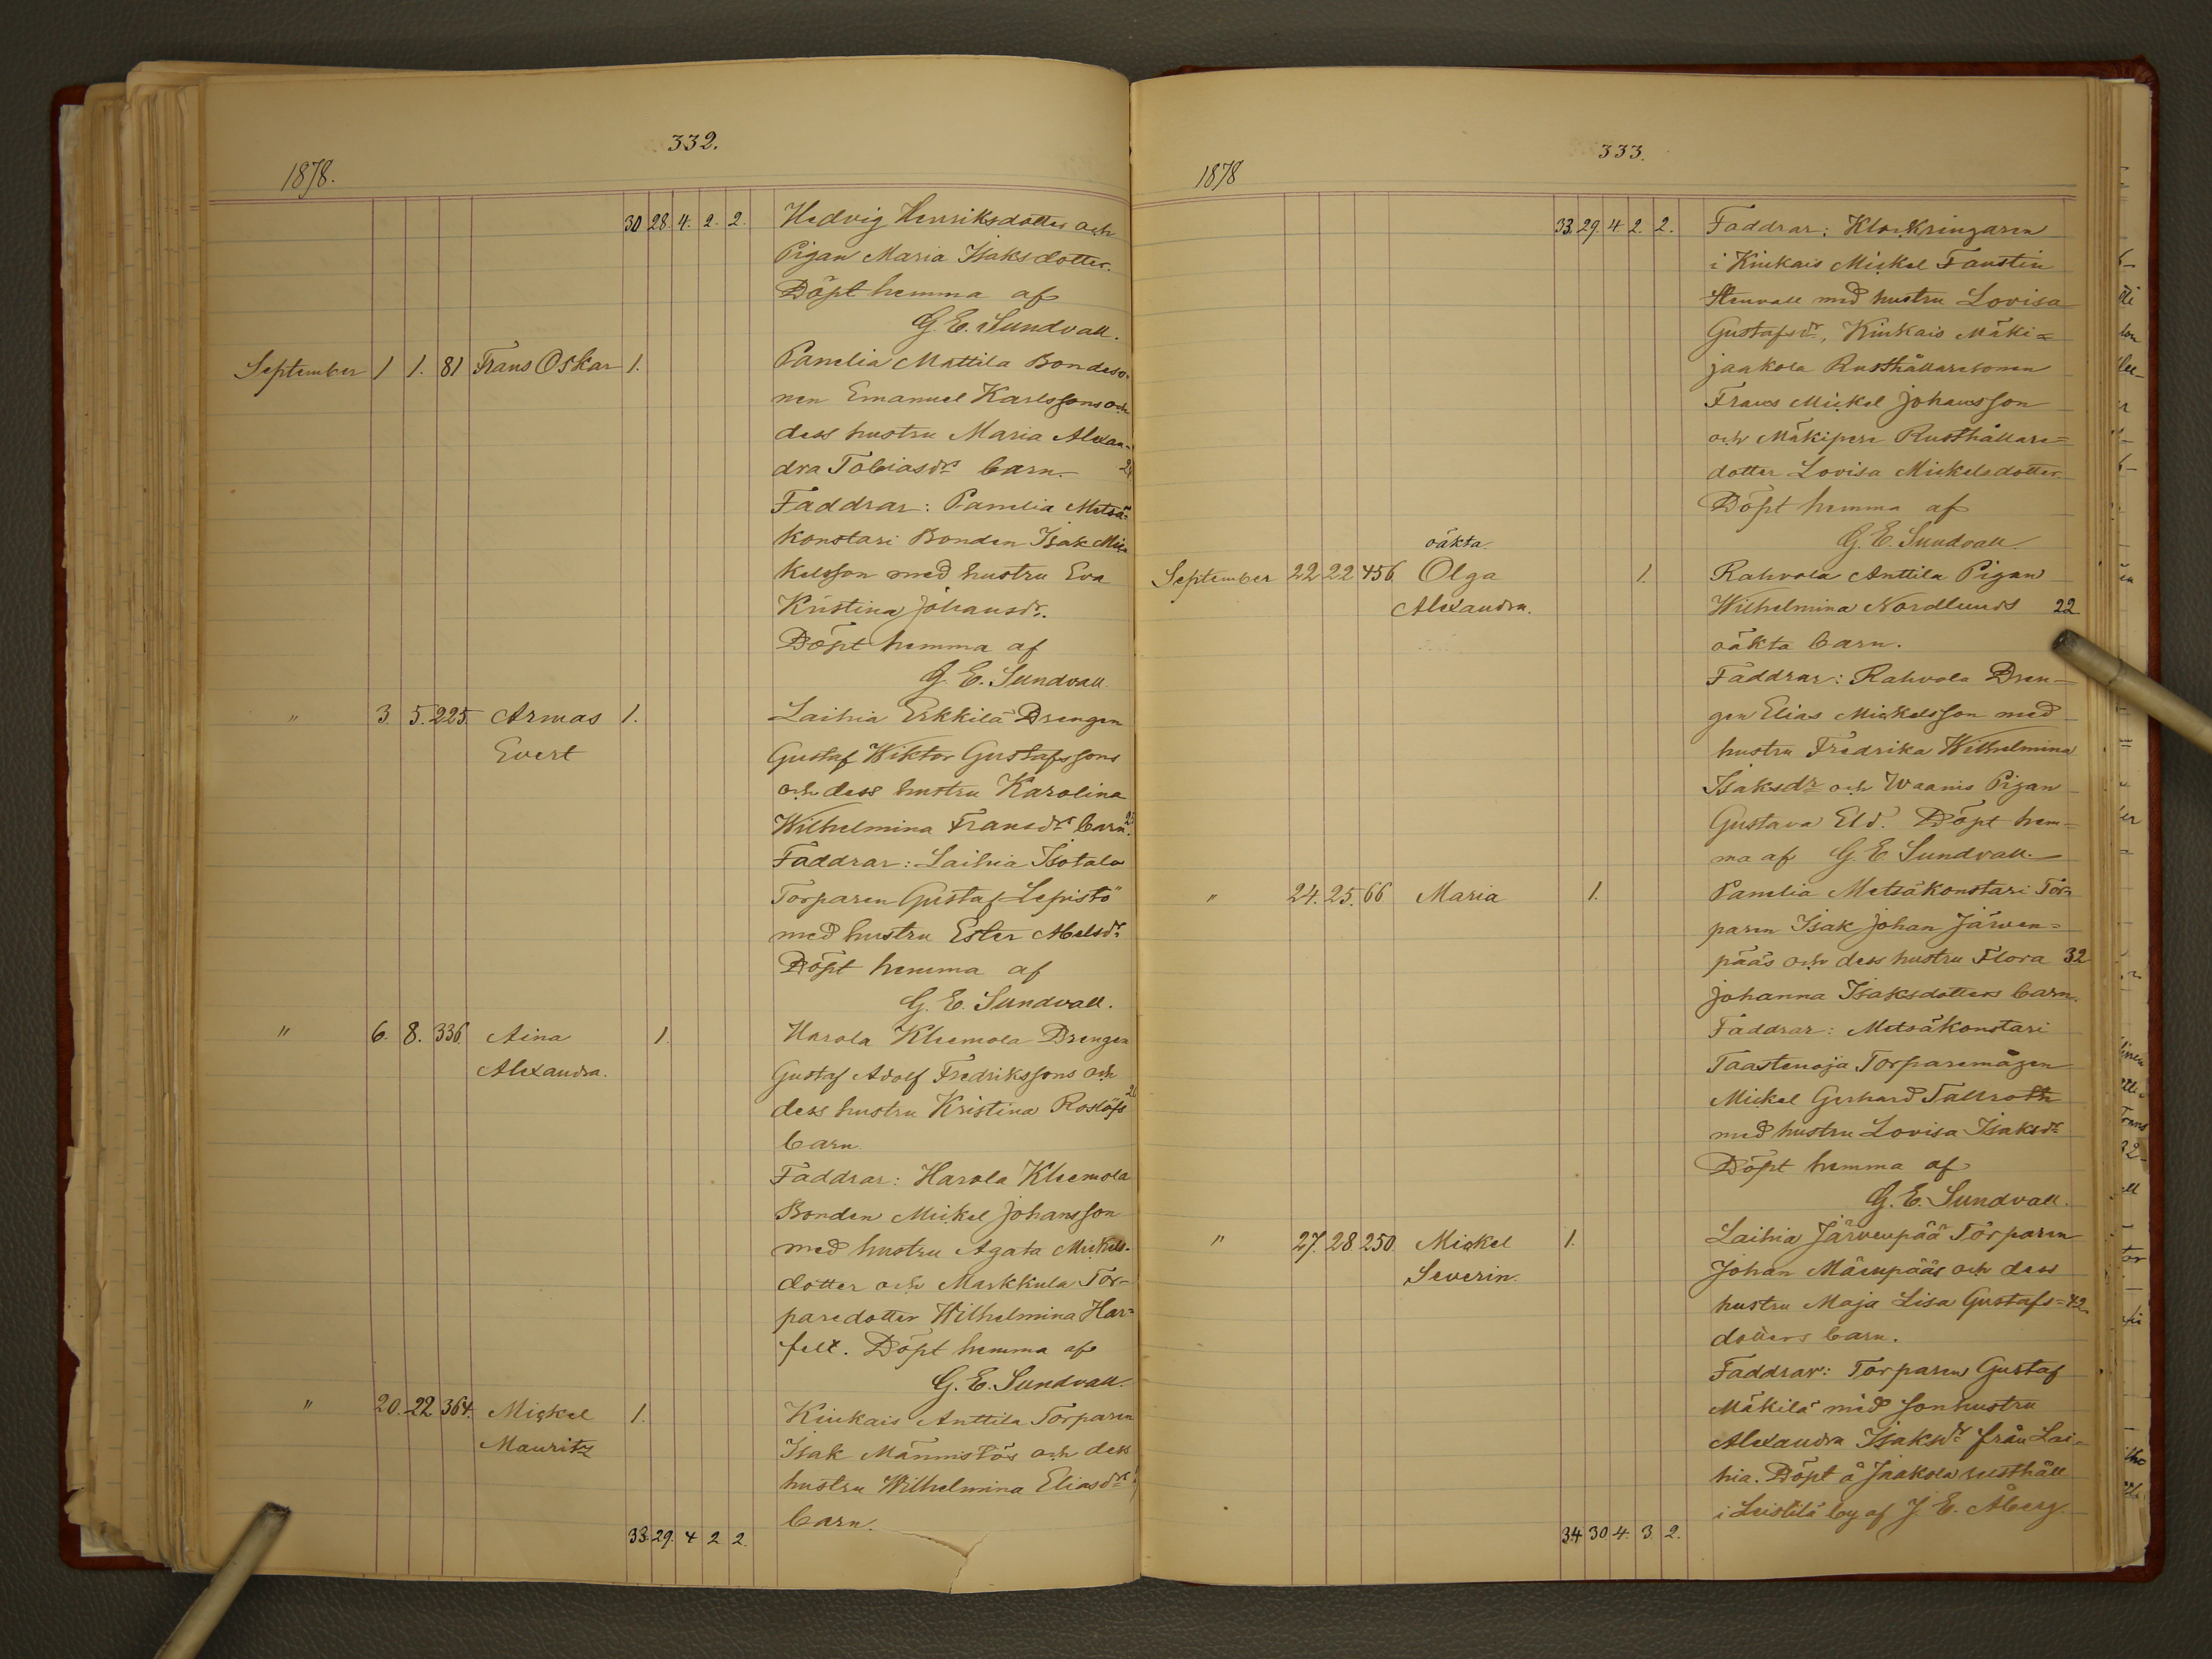 332.
1878.
30 28. 4. 2. 2. Hedvig Henriksdotter och
Pigan Maria Isaksdotter.
Döpt hemma af
G. E. Sundvall.
September 1 1. 81 Frans Oskar 1. Panelia Mattila Bondeso-
nen Emanuel Karlssons och
dess hustru Maria Alexan-
dra Tobiasdr barn.
Faddrar: Panelia Metsä-
konstari Bonden Isak Mic-
kelsson med hustru Eva
Kristina Johansdr.
Döpt hemma af
G. E. Sundvall.
" 3. 5. 225. Armas 1. Laihia Erkkilä Drengen
Evert Gustaf Wiktor Gustafssons
och dess hustru Karolina
Wilhelmina Fransdr barn.
Faddrar: Laihia Isotalo
Torparen Gustaf Lepistö
med hustru Ester Abelsdr
Döpt hemma af
G. E. Sundvall.
" 6. 8. 336. Aina 1. Harola Kleemola Drengen
Alexandra. Gustaf Adolf Fredrikssons och
dess hustru Kristina Roslöfs
barn.
Faddrar: Harola Kleemola
Bonden Mickel Johansson
med hustru Agata Mickels-
dotter och Markkula Tor-
paredotter Wilhelmina Har=
felt. Döpt hemma af
G. E. Sundvall.
" 20. 22 364. Mickel 1. Kiukais Anttila Torparen
Mauritz Isak Männistös och dess
hustru Wilhelmina Eliasdr
barn.
33. 29. 4 2 2.
333.
1878
33. 29. 4. 2. 2. Faddrar: Klockringaren
i Kiukais Mickel Faustin
Stenvall med hustru Lovisa
Gustafsdr, Kiukais Mäki=
jaakola Rusthållaresonen
Frans Mickel Johansson
och Mäkipere Rusthållare=
dotter Lovisa Mickelsdotter.
Döpt hemma af
G. E. Sundvall.
oäkta
September 22 22 456 Olga 1. Rahvola Anttila Pigan
Alexandra. Wilhelmina Nordlunds 22
oäkta barn.
Faddrar: Rahvola Dren-
gen Elias Mickelsson med
hustru Fredrika Wilhelmina
Isaksdr och Waanis Pigan
Gustava Eld. Döpt hem=
ma af G. E. Sundvall.
" 24. 25. 66 Maria 1. Panelia Metsäkonstari Tor-
paren Isak Johan Järven=
pääs och dess hustru Flora 32
Johanna Isaksdotters barn.
Faddrar: Metsäkonstari
Taastenoja Torparemågen
Mickel Gerhard Tallroth
med hustru Lovisa Isaksdr
Döpt hemma af
G. E. Sundvall.
" 27. 28 250. Mickel 1. Laihia Järvenpää Torparen
Severin. Johan Mäenpääs och dess
hustru Maja Lisa Gustafs= 42
dotters barn.
Faddrar: Torparen Gustaf
Mäkilä med sonhustru
Alexandra Isaksdr från Lai-
hia. Döpt å Jaakola rusthåll
i Leistilä by af J. E. Åberg.
34 30 4. 3 2.